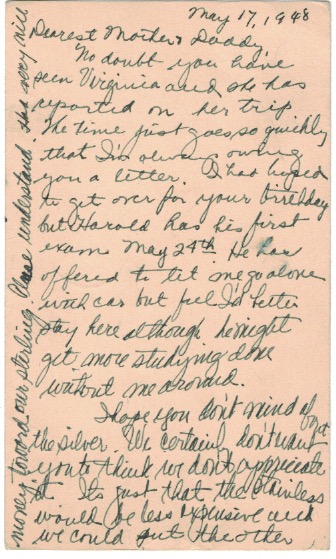 May 17, 1948
Dearest Mother & Daddy,
No doubt you have
seen Virginia and she has
reported on her trip
The time just goes so quickly
that I'm always owing
you a letter. I had hoped
to get over for your birthday
but Harold has his first
exam May 24th. He has
offered to let me go alone
with car but feel I'd better
stay here although he might
get more studying done
without me around.
I hope you don't mind abt
the silver. We certainly don't want
you to think we don't appreciate
it. Its just that the stainless
would be less expensive and
we could put the other
money toward our sterling. Please understand. Had very nice